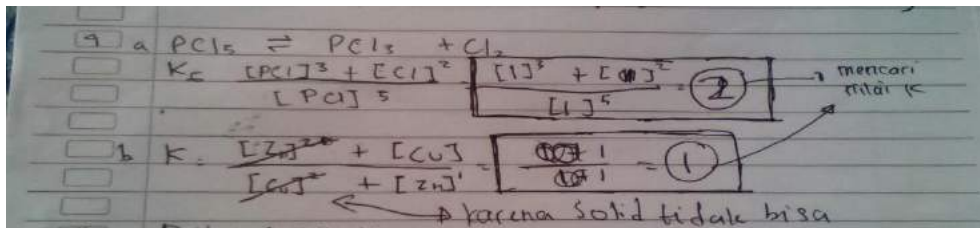 9 a PCl5 ⇌ PCl3 + Cl2
Kc [PCl]³ + [Cl]² / [PCl]⁵ = [1]³ + [1]² / [1]⁵ = 2 → mencari nilai K
b K = [Zn]²⁺ + [Cu] / [Cu]² + [Zn]¹ = 1 / 1 = 1
karena solid tidak bisa